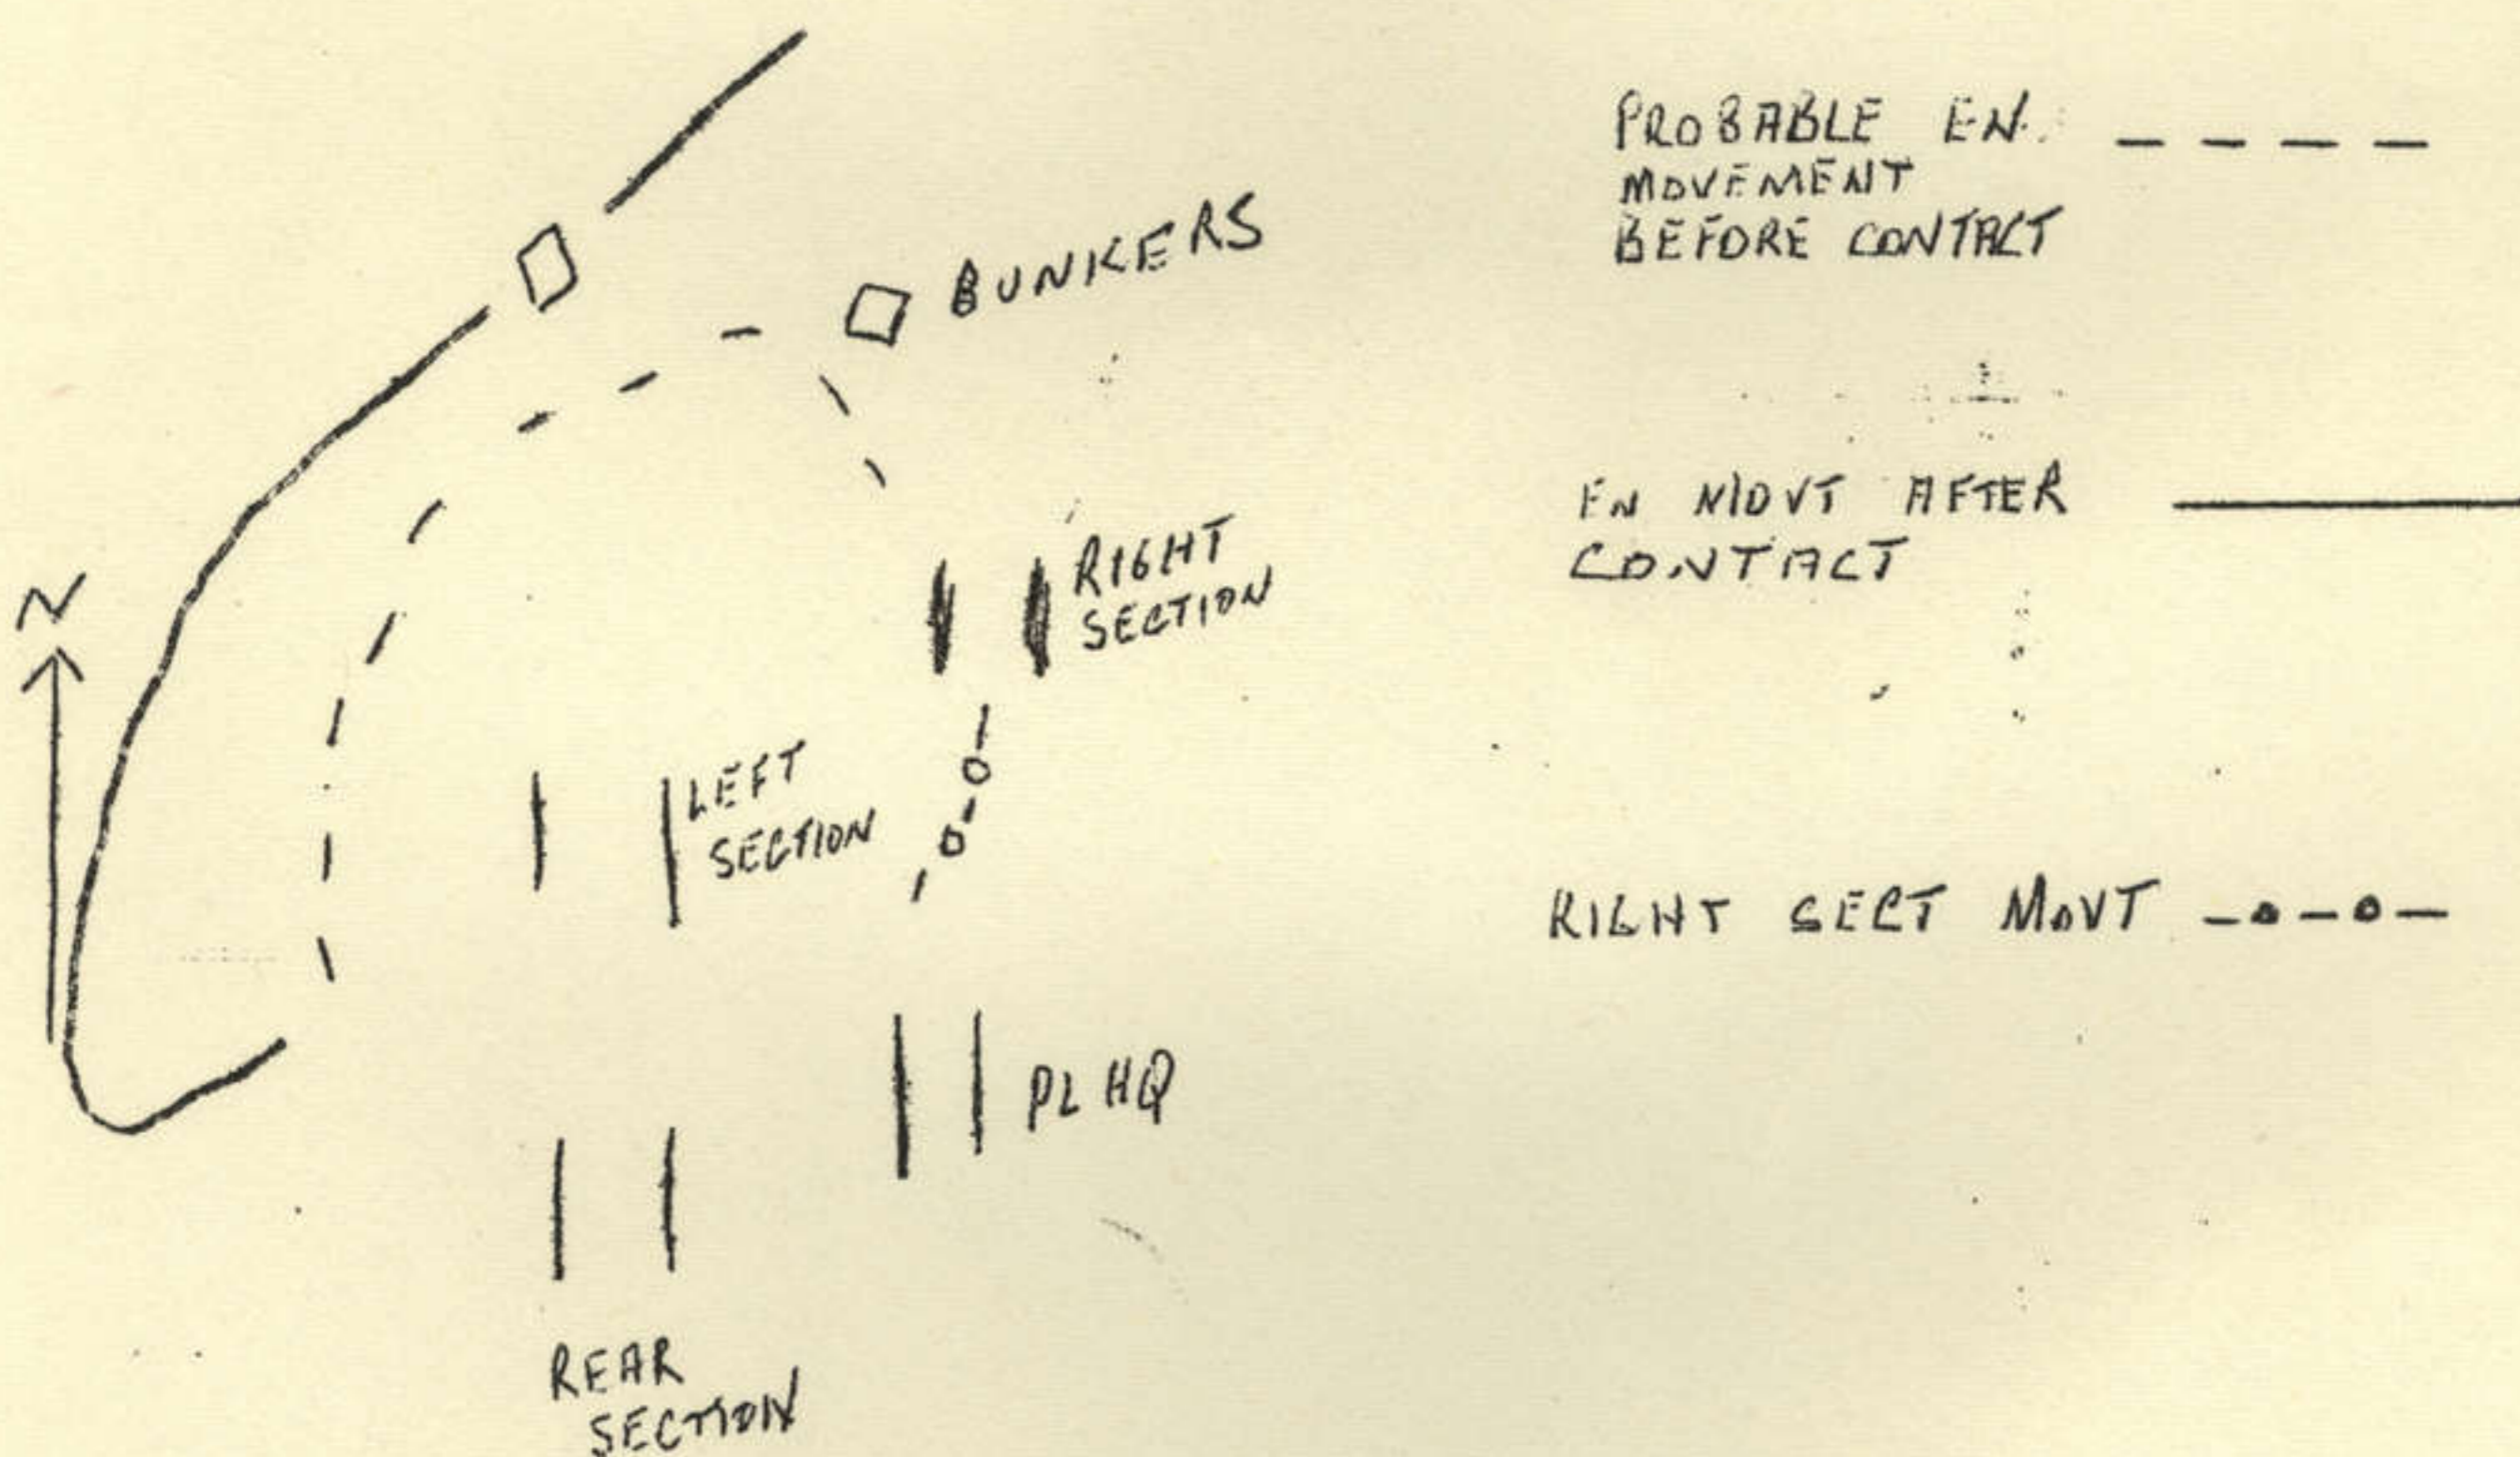 BUNKERS
N
RIGHT
SECTION
LEFT
SECTION
PL HQ
REAR
SECTION
PROBABLE EN.
MOVEMENT
BEFORE CONTACT
EN MOVT AFTER
CONTACT
RIGHT SECT MOVT